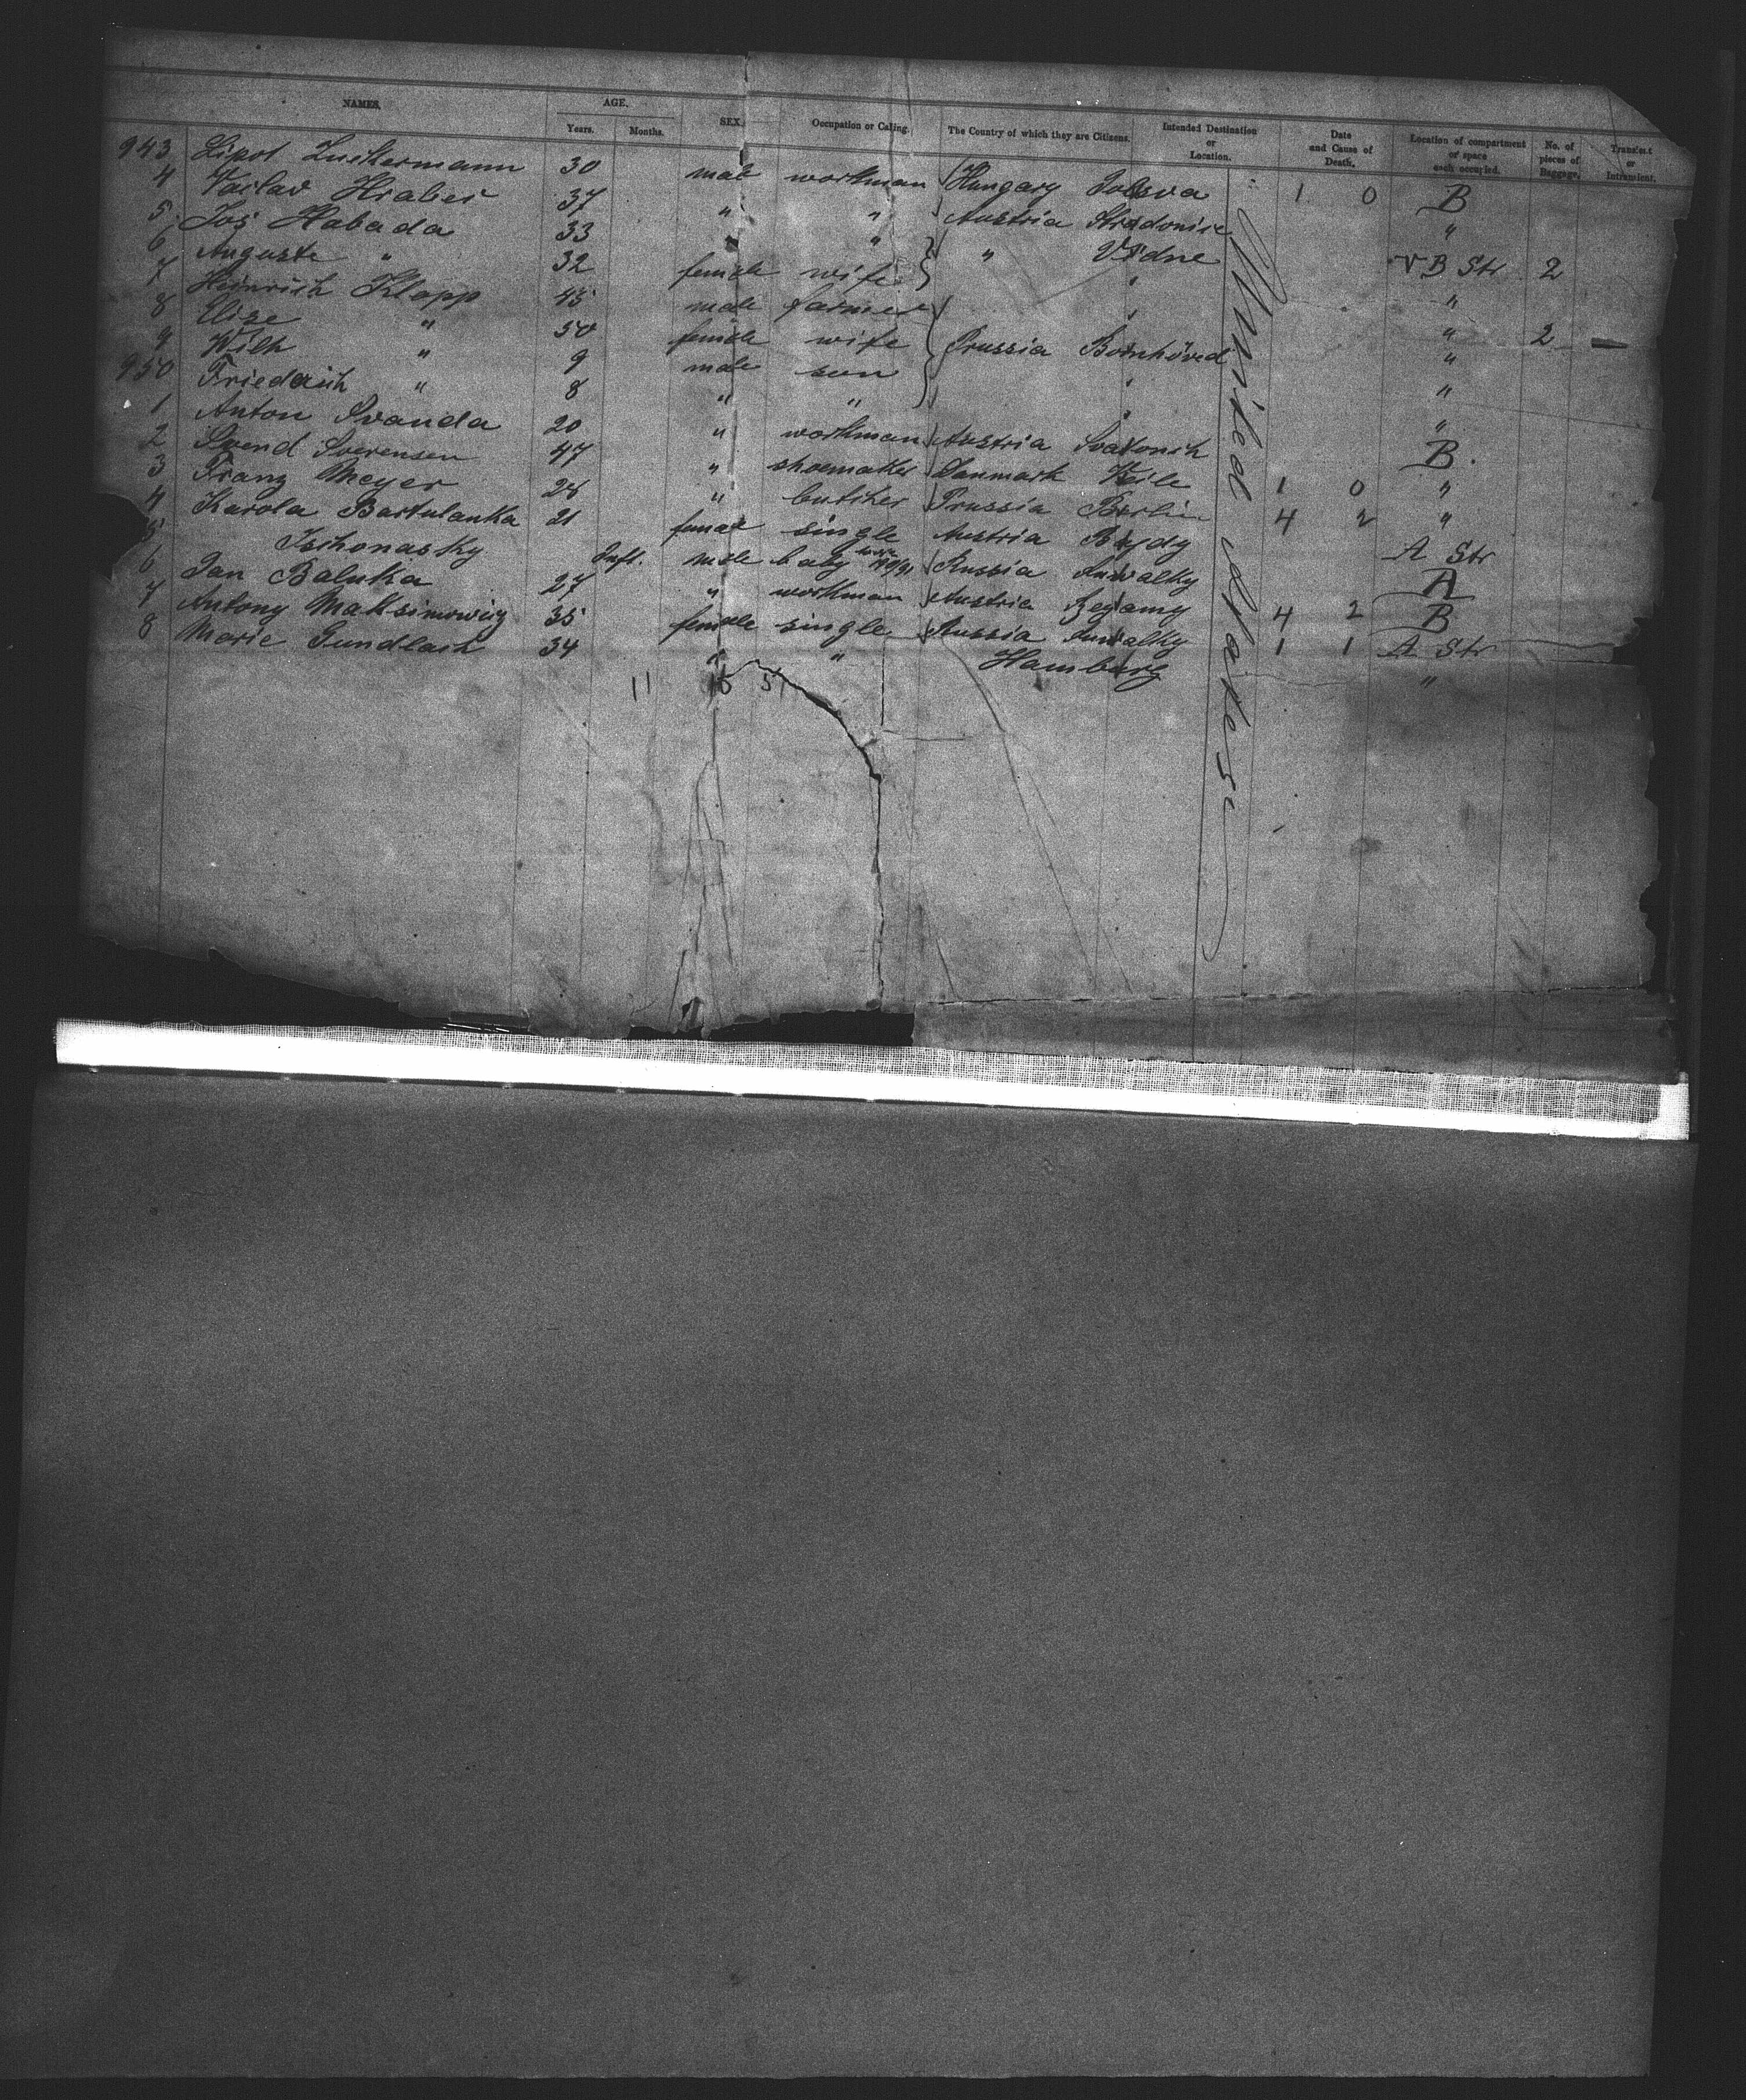 NAMES. AGE. Years. Months. SEX. Occupation or Calling. The Country of which they are Citizens. Intended Destination or Location. Date and Cause of Death. Location of compartment or space each occupied. No. of pieces of Baggage. Transient or Intransient.
943 Lipot Zuckermann 30 male workman Hungary Jolsva 1 0 B
4 Vaclav 37 " " Austria Stradonice "
5 Jos Habada 33 " " " Vidne B Str 2
6 Auguste " 32 female wife "
7 Heinrich Klopp 45 male farmer " 2
8 Elise " 50 female wife Prussia Bornhöved "
9 Wilh " 9 male son "
950 Friedrich " 8 " " "
1 Anton Svanda 20 " workman Austria B
2 Svend Sverensen 47 " shoemaker Danmark Veile 1 0 "
3 Franz Meyer 24 " butcher Prussia Berlin 4 2 "
4 Karola Bartulanka 21 female single Austria A Str
5 Inft. male baby Russia Suwalky A
6 Jan Baluka 27 " workman Austria 4 2 B
7 Antony Maksimowicz 35 female single Russia Suwalky 1 1 A Str
8 Marie Gundlach 34 " " Hamburg "
United States
11 5